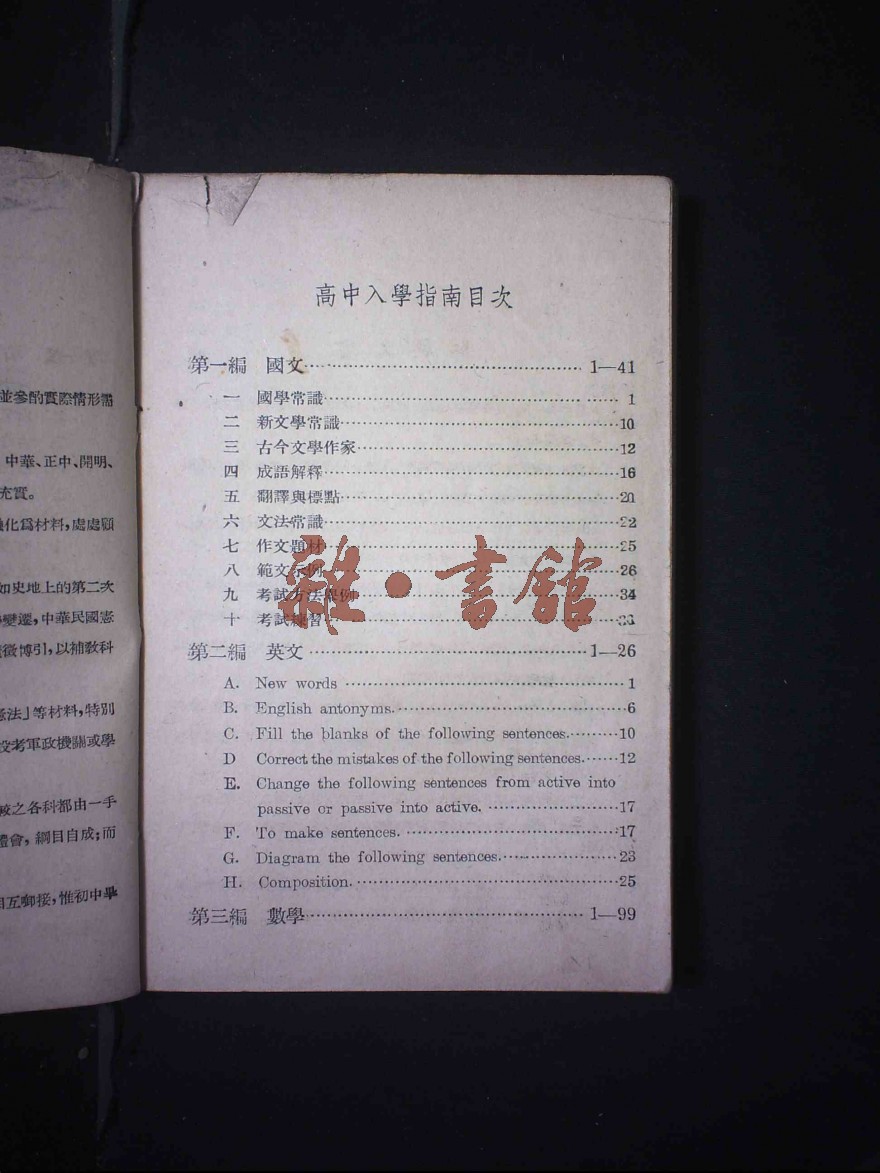 並參酌實際情形需
中華、正中、開明、
充實。
化爲材料,處處顧
如史地上的第二次
變遷,中華民國憲
徵博引,以補敎科
憲法」等材料,特別
投考軍政機關或學
較之各科都由一手
體會,綱目自成;而
相互啣接,惟初中畢
高中入學指南目次
第一編 國文 1—41
一 國學常識 1
二 新文學常識 10
三 古今文學作家 12
四 成語解釋 16
五 翻譯與標點 21
六 文法常識 22
七 作文題材 25
八 範文示例 26
九 考試方法舉例 34
十 考試練習
第二編 英文 1—26
A. New words 1
B. English antonyms. 6
C. Fill the blanks of the following sentences. 10
D Correct the mistakes of the following sentences. 12
E. Change the following sentences from active into
passive or passive into active. 17
F. To make sentences. 17
G. Diagram the following sentences. 23
H. Composition. 25
第三編 數學 1—99
雜·書館